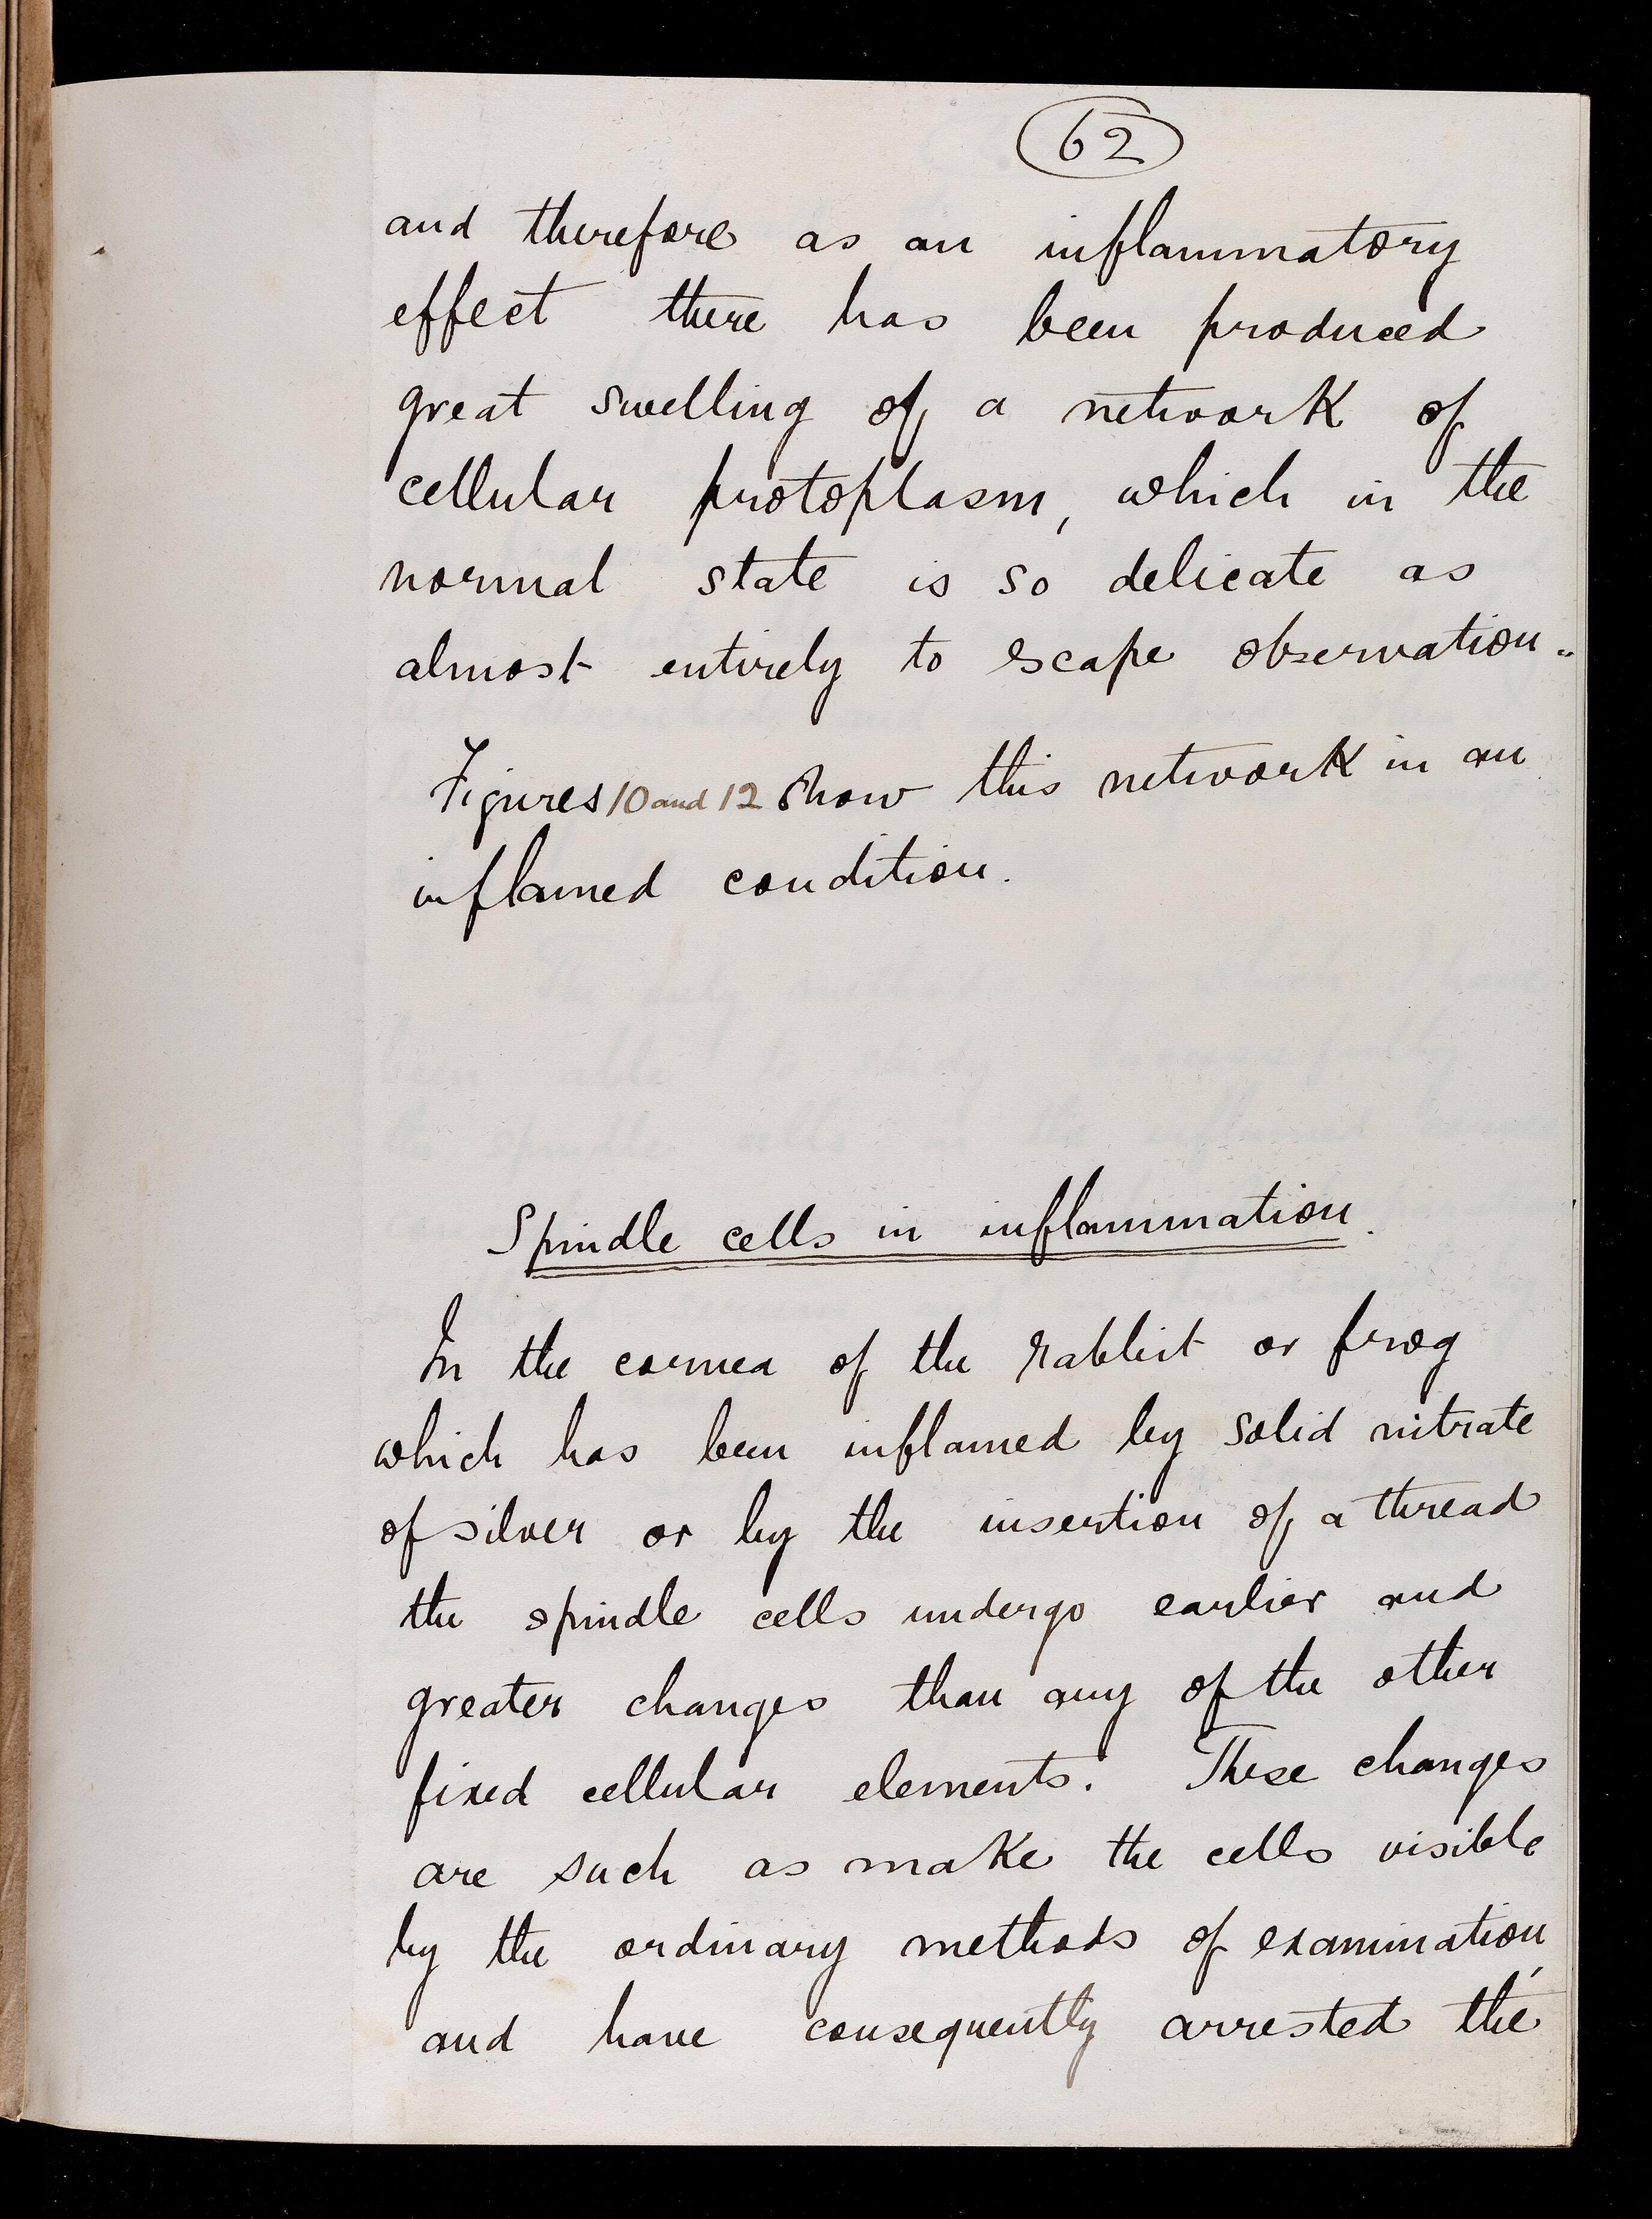 62
and therefore as an inflammatory
effect there has been produced
great swelling of a network of
cellular protoplasm, which in the
normal state is so delicate as
almost entirely to escape observation.
Figures 10 and 12 show this network in an
inflamed condition.
Spindle cells in inflammation.
In the cornea of the rabbit or frog
which has been inflamed by solid nitrate
of silver or by the insertion of a thread
the spindle cells undergo earlier and
greater changes than any of the other
fixed cellular elements. These changes
are such as make the cells visible
by the ordinary methods of examination,
and have consequently arrested the